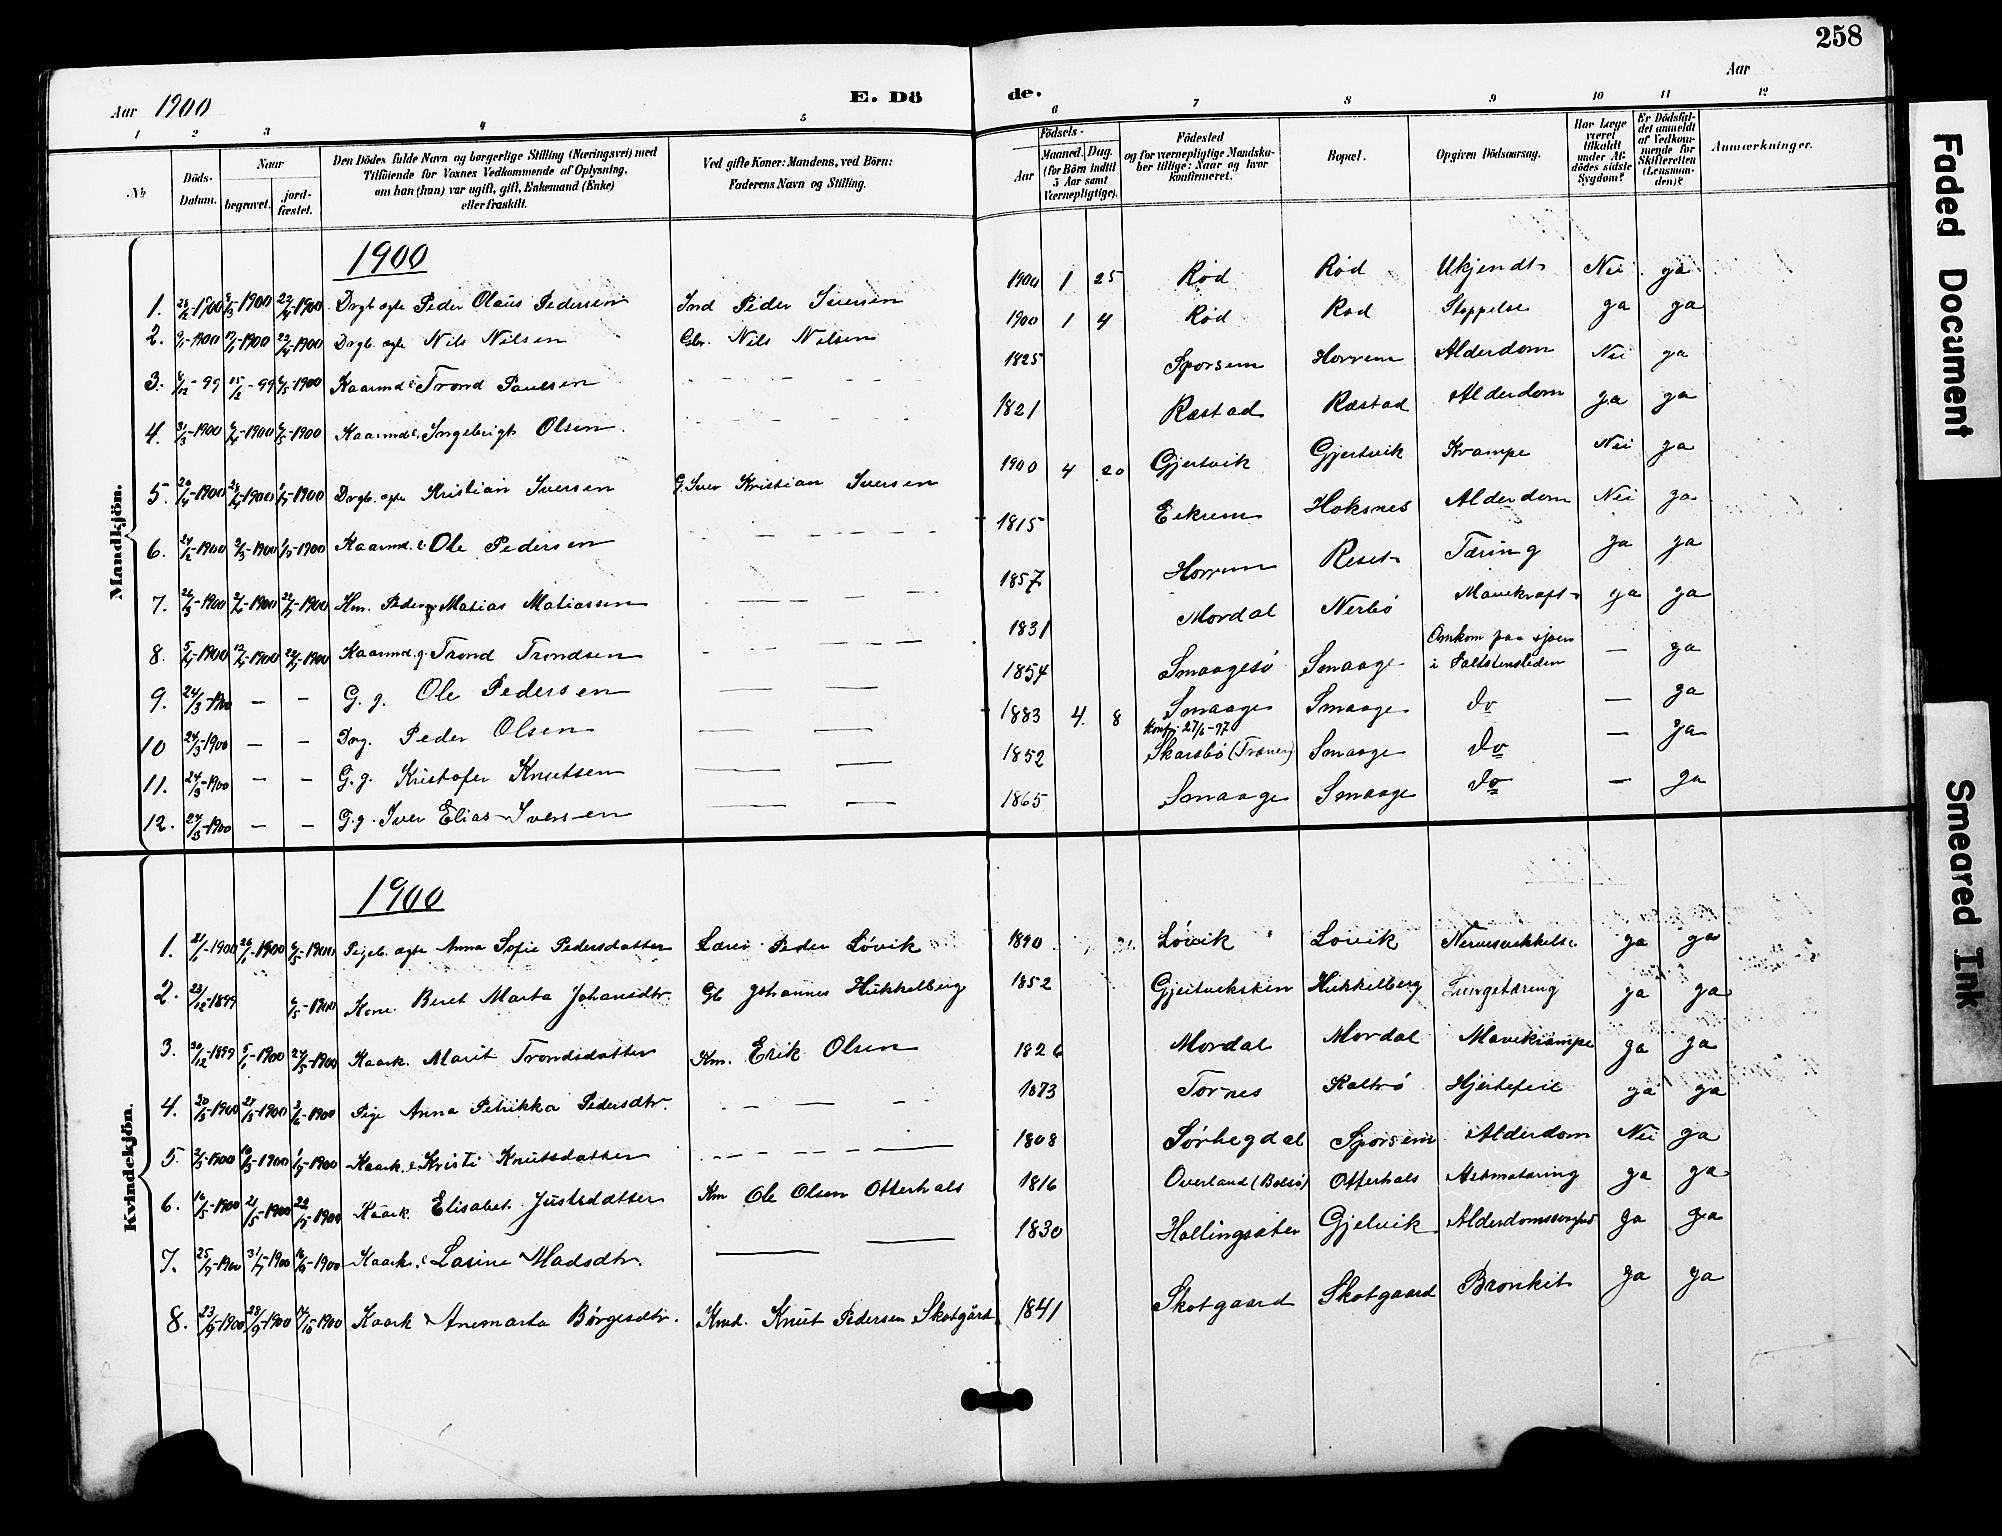 258
Aar 1900 E. Dö
de. Aar
1 2 3 4 5
6 7 8 9 10 11 12
№
Döds-
Datum.
Naar
begravet.
jord-
fæstet.
Den Dödes fulde Navn og borgerlige Stilling (Næringsvei) med
Tilföiende for Voxnes Vedkommende af Oplysning,
om han (hun) var ugift, gift, Enkemand (Enke)
eller fraskilt.
Ved gifte Koner: Mandens, ved Börn:
Faderens Navn og Stilling.
Födsels-
Aar
Maaned. Dag.
(for Börn indtil
5 Aar samt
Værnepligtige).
Födested
og for værnepligtige Mandska-
ber tillige: Naar og hvor
konfirmeret.
Bopæl.
Opgiven Dödsaarsag.
Har Læge
været
tilkaldt
under Af-
dödes sidste
Sygdom?
Er Dödsfal-
det anmeldt
af Vedkom-
mende for
Skifteretten
(Lensman-
den)?
Anmærkninger.
Mandkjön.
1900
1. Drgb. ægte Peder Olaus Pedersen Ind Peder Iversen 1900 1 25 Rød Rød Ukjendt Nei ja
2. 17/1-1900 Drgb. ægte Nils Nilsen Gbr. Nils Nilsen 1900 1 4 Rød Rød Stoppelse ja ja
3. -99 15/12-99 6/5-1900 Kaarmd. Trond Paulsen 1825 Sporsem Horrem Alderdom Nei ja
4. 31/3-1900 6/4-1900 6/5-1900 Kaarmd. Ingebrigt Olsen 1821 Ræstad Ræstad Alderdom ja ja
5. 20/4-1900 1900 Drgb. ægte Kristian Iversen G. Iver Kristian Iversen 1900 4 20 Gjertvik Gjertvik Krampe Nei ja
6. 1900 1900 1900 Kaarmd. e Ole Pedersen 1815 Eikrem Hoksnes Alderdom Nei ja
7. 1900 1900 1900 Hm. Matias Matiassen 1857 Horrem Reset Tæring ja ja
8. 5/4-1900 12/4-1900 1900 Kaarmd. g. Trond Trondsen 1831 Mordal Nerbø Mavekræft ja ja
9. 24/3-1900 — — G. g. Ole Pedersen 1854 Smaagesø Smaage Omkom paa sjøen
i — ja
10 24/3-1900 — — Drg. Peder Olsen 1883 4. 8 Smaage Smaage do — ja
Konfr. 27/6-97
11. 24/3-1900 — — G. g. Kristofer Knutsen 1852 Skarsbø Smaage do — ja
12. 24/3-1900 — — G. g. Iver Elias Iversen 1865 Smaage Smaage do — ja
Kvindekjön.
1900
1. 21/1-1900 26/1-1900 6/5-1900 Pigeb. ægte Anna Sofie Pedersdatter Lærer Peder Løvik 1890 Løvik Løvik ja ja
2. 23/12-1899 6/5-1900 Kone Beret Marta Johansdtr. Gb Johannes Hukkelberg 1852 Hukkelberg Lungetæring ja ja
3. 30/12-1899 5/1-1900 27/5-1900 Kaark. Marit Trondsdatter Km. Erik Olsen 1826 Mordal Mordal Mavekrampe ja ja
4. 20/5-1900 27/5-1900 1900 Pige Anna Petrikka Pedersdtr. 1873 Tornes Hjertefeil ja ja
5. 1900 1900 1900 Kaark. e Kristi Knutsdatter 1808 Sørhegdal Sporsem Alderdom Nei ja
6. 16/5-1900 21/5-1900 22/7-1900 Kaark. Elisabet Justsdatter Km Ole Olsen Otterhals 1816 Overland (Bolsø) Otterhals Astmatæring ja ja
7. 25/7-1900 31/7-1900 16/9-1900 Kaark. e Lasine Madsdtr. 1830 Hollingsæter Gjelvik ja ja
8. 23/9-1900 28/9-1900 14/10-1900 Kaark Anemarta Børgesdtr. Kmd. Knut Pedersen Skotgård 1841 Skotgaard Skotgaard Bronkit ja ja
Faded Document
Smeared Ink